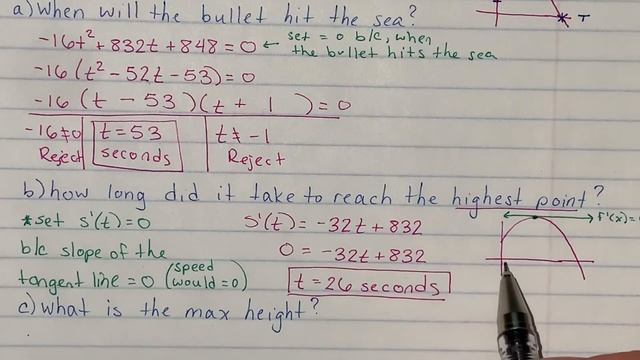 a) When will the bullet hit the sea?
T
-16t² + 832t + 848 = 0 ← set = 0 b/c, when
the bullet hits the sea
-16(t² - 52t - 53) = 0
-16 (t - 53)(t + 1) = 0
-16≠0 t = 53 t ≠ -1
Reject seconds Reject
b) how long did it take to reach the highest point?
*set s'(t)=0 s'(t) = -32t + 832 f'(x)=
b/c slope of the 0 = -32t + 832
tangent line = 0 (speed would = 0) t = 26 seconds
c) what is the max height?